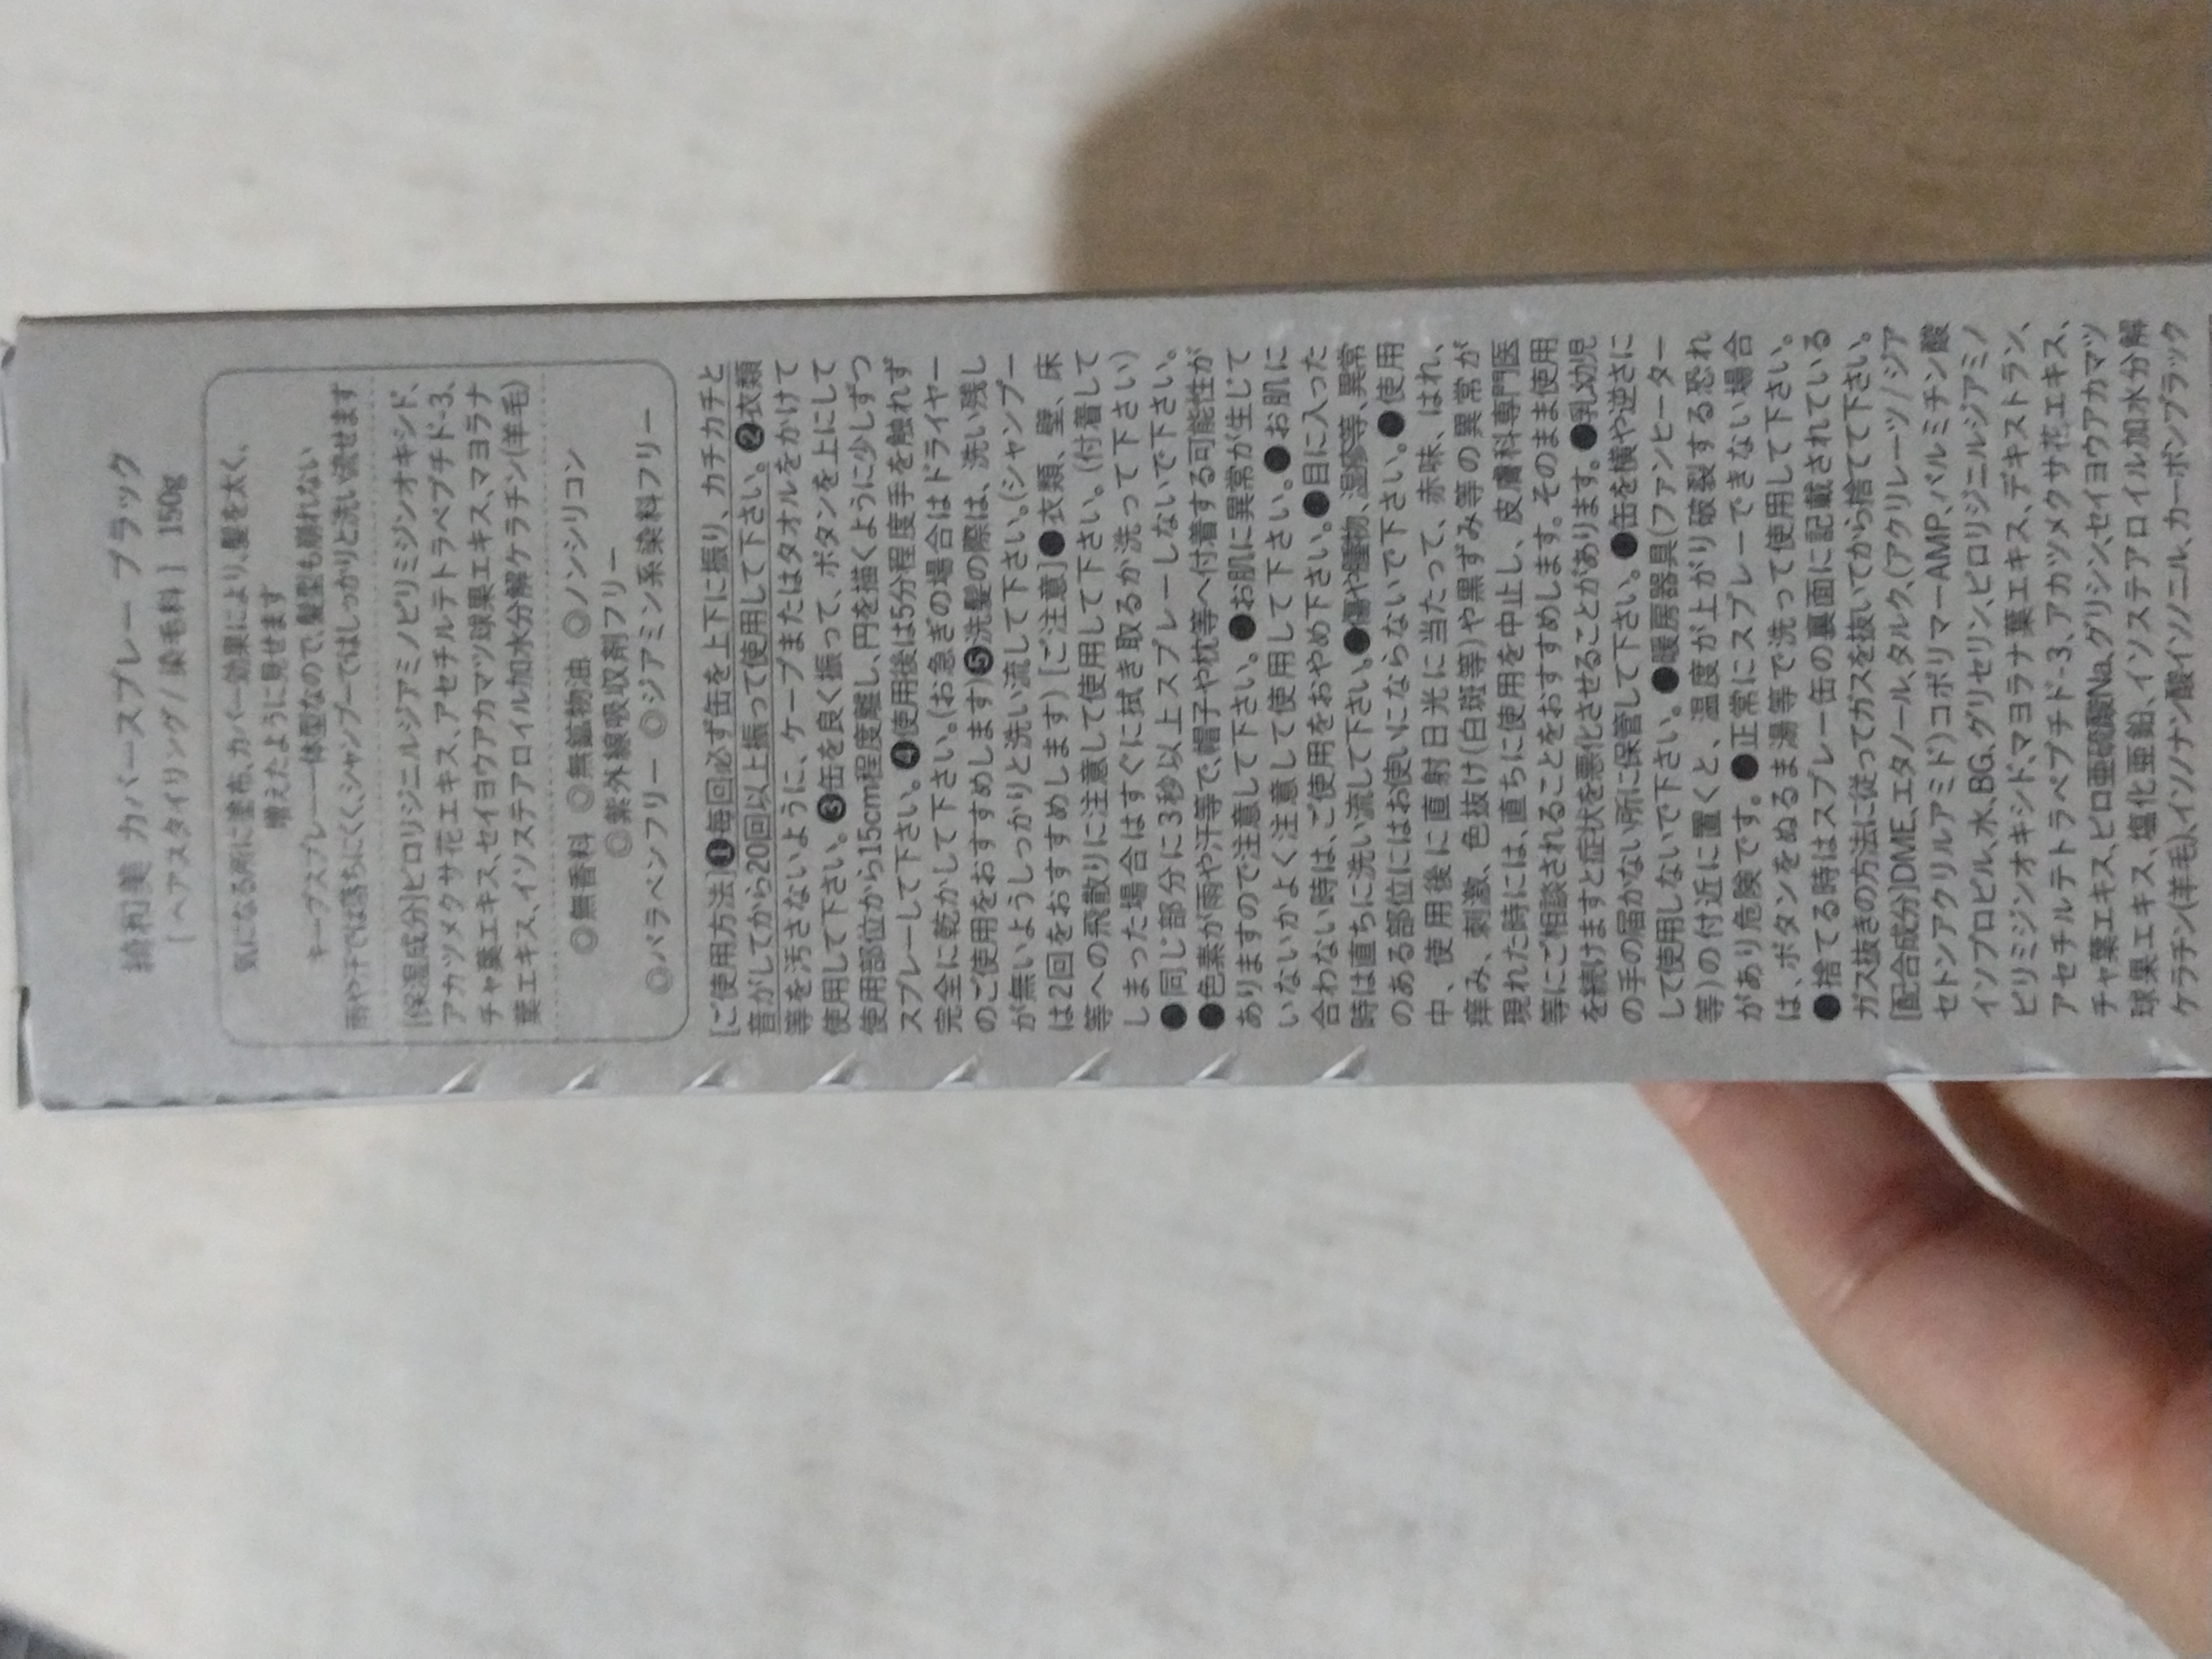 綺和美 カバースプレー ブラック
[ ヘアスタイリング / 染毛料 ] 150g
気になる所に塗布、カバー効果により、髪を太く、
増えたように見せます
キープスプレー一体型なので、髪型も崩れない
雨や汗では落ちにくく、シャンプーではしっかりと洗い流せます
[保湿成分]ピロリジニルジアミノピリミジンオキシド、
アカツメクサ花エキス、アセチルテトラペプチド-3、
チャ葉エキス、セイヨウアカマツ球果エキス、マヨラナ
葉エキス、イソステアロイル加水分解ケラチン(羊毛)
◎無香料 ◎無鉱物油 ◎ノンシリコン
◎紫外線吸収剤フリー
◎パラベンフリー ◎ジアミン系染料フリー
[ご使用方法]❶毎回必ず缶を上下に振り、カチカチと
音がしてから20回以上振って使用して下さい。❷衣類
等を汚さないように、ケープまたはタオルをかけて
使用して下さい。❸缶を良く振って、ボタンを上にして
使用部位から15cm程度離し、円を描くように少しずつ
スプレーして下さい。❹使用後は5分程度手を触れず
完全に乾かして下さい。(お急ぎの場合はドライヤー
のご使用をおすすめします)❺洗髪の際は、洗い残し
が無いようしっかりと洗い流して下さい。(シャンプー
は2回をおすすめします) [ご注意]●衣類、壁、床
等への飛散りに注意して使用して下さい。(付着して
しまった場合はすぐに拭き取るか洗って下さい)
●同じ部分に3秒以上スプレーしないで下さい。
●色素が雨や汗等で、帽子や枕等へ付着する可能性が
ありますので注意して下さい。●お肌に異常が生じて
いないかよく注意して使用して下さい。●お肌に
合わない時は、ご使用をおやめ下さい。●目に入った
時は直ちに洗い流して下さい。●傷や腫物、湿疹等、異常
のある部位にはお使いにならないで下さい。●使用
中、使用後に直射日光に当たって、赤味、はれ、
痒み、刺激、色抜け(白斑等)や黒ずみ等の異常が
現れた時には、直ちに使用を中止し、皮膚科専門医
等にご相談されることをおすすめします。そのまま使用
を続けますと症状を悪化させることがあります。●乳幼児
の手の届かない所に保管して下さい。●缶を横や逆さに
して使用しないで下さい。●暖房器具(ファンヒーター
等)の付近に置くと、温度が上がり破裂する恐れ
があり危険です。●正常にスプレーできない場合
は、ボタンをぬるま湯等で洗って使用して下さい。
●捨てる時はスプレー缶の裏面に記載されている
ガス抜きの方法に従ってガスを抜いてから捨てて下さい。
[配合成分]DME、エタノール、タルク、(アクリレーツ / ジア
セトンアクリルアミド)コポリマーAMP、パルミチン酸
イソプロピル、水、BG、グリセリン、ピロリジニルジアミノ
ピリミジンオキシド、マヨラナ葉エキス、デキストラン、
アセチルテトラペプチド-3、アカツメクサ花エキス、
チャ葉エキス、ピロ亜硫酸Na、グリシン、セイヨウアカマツ
球果エキス、塩化亜鉛、イソステアロイル加水分解
ケラチン(羊毛)、イソノナン酸イソノニル、カーボンブラック